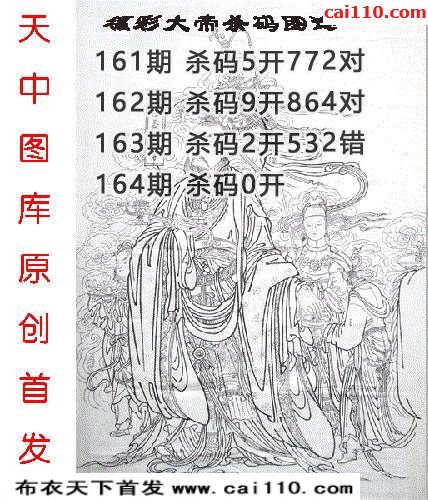 cai110.com
彩大帝杀码图
161期 杀码5开772对
162期 杀码9开864对
163期 杀码2开532错
164期 杀码0开
天中图库原创首发
布衣天下首发 www.cai110.com